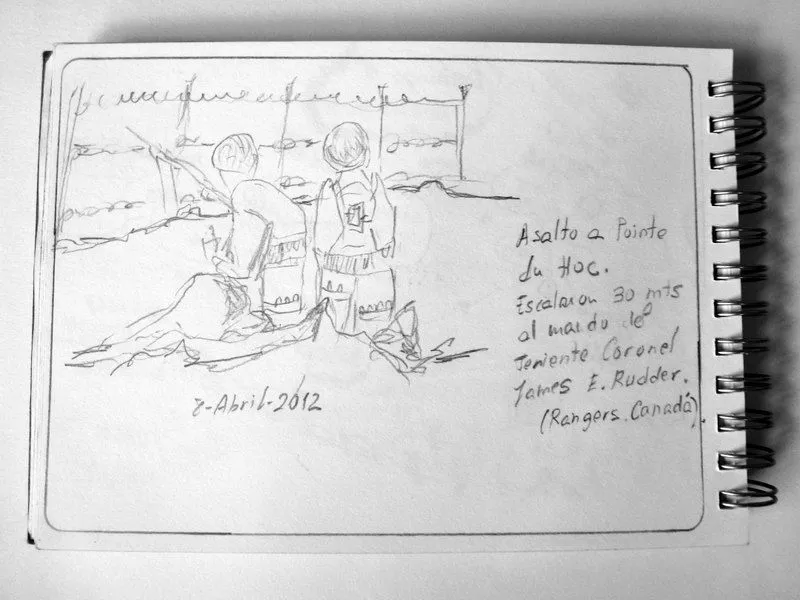 Asalto a Pointe
du Hoc.
Escalaron 30 mts
al mando del
Teniente Coronel
James E. Rudder.
(Rangers.Canadá).
8-Abril-2012